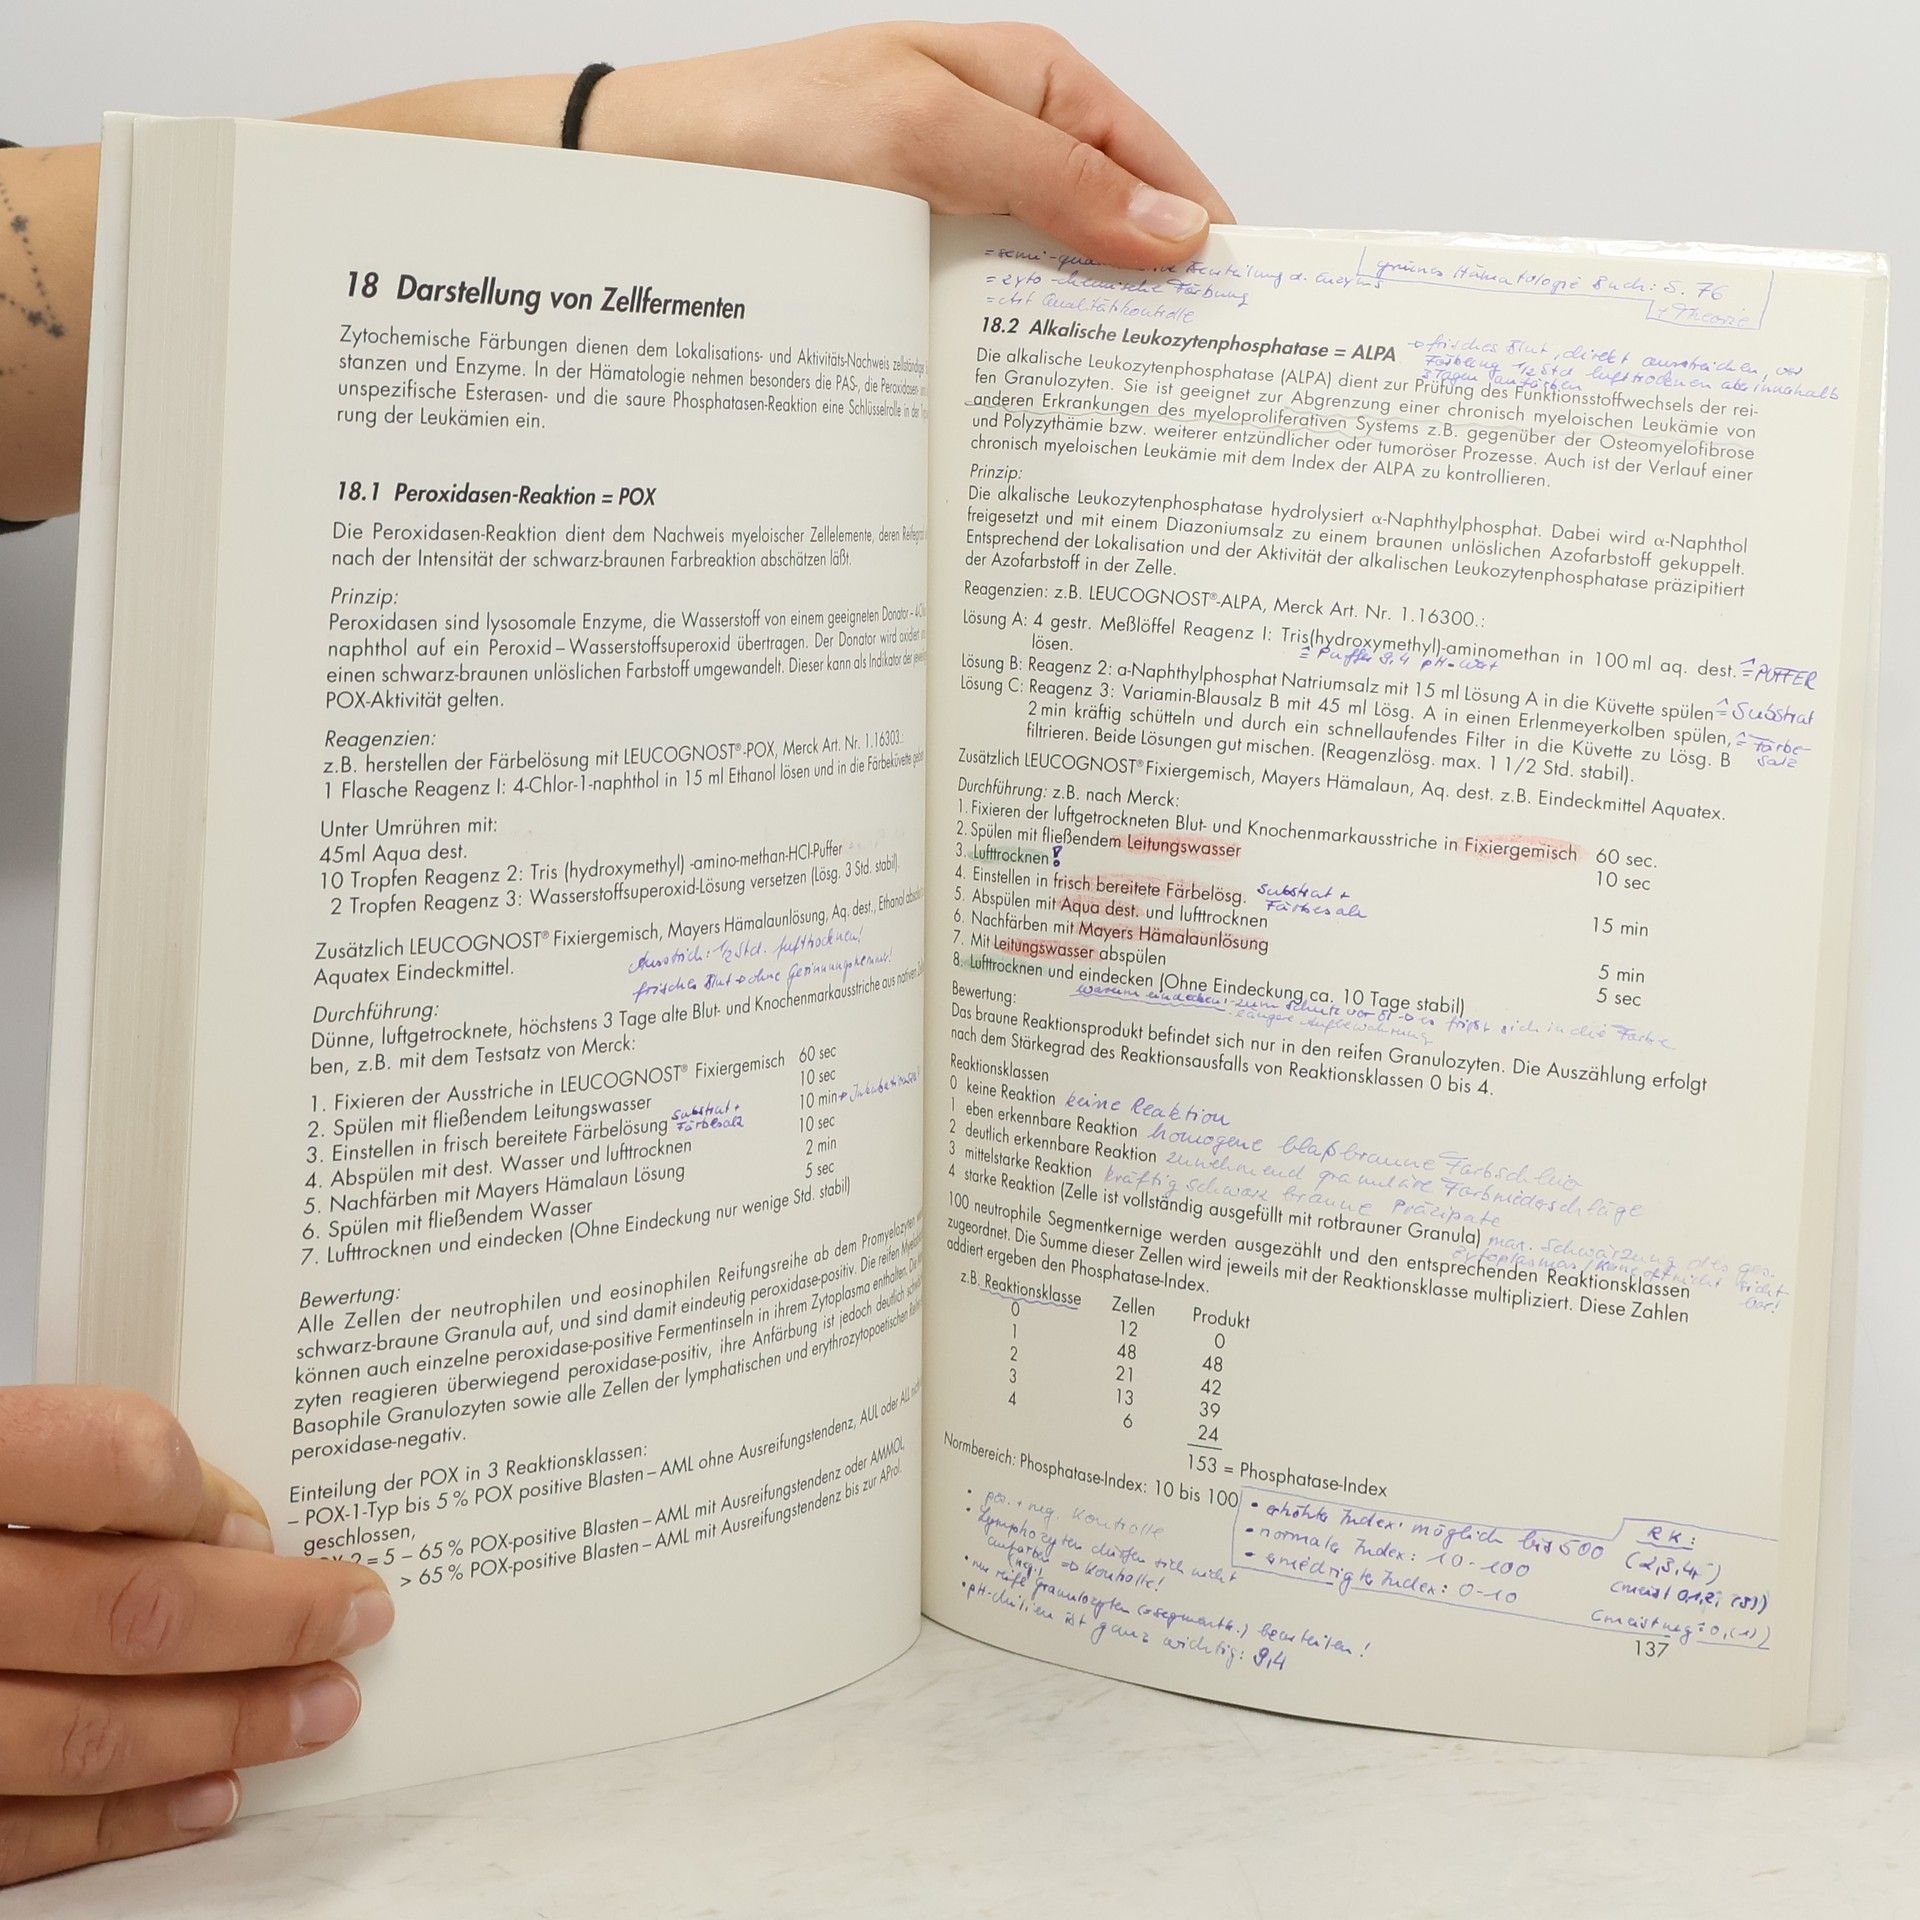 18 Darstellung von Zellfermenten
Zytochemische Färbungen dienen dem Lokalisations- und Aktivitäts-Nachweis zellständige
stanzen und Enzyme. In der Hämatologie nehmen besonders die PAS-, die Peroxidasen-
unspezifische Esterasen- und die saure Phosphatasen-Reaktion eine Schlüsselrolle in der
rung der Leukämien ein.
18.1 Peroxidasen-Reaktion = POX
Die Peroxidasen-Reaktion dient dem Nachweis myeloischer Zellelemente, deren Reifegrad
nach der Intensität der schwarz-braunen Farbreaktion abschätzen läßt.
Prinzip:
Peroxidasen sind lysosomale Enzyme, die Wasserstoff von einem geeigneten Donator –
naphthol auf ein Peroxid – Wasserstoffsuperoxid übertragen. Der Donator wird oxidiert
einen schwarz-braunen unlöslichen Farbstoff umgewandelt. Dieser kann als Indikator der
POX-Aktivität gelten.
Reagenzien:
z.B. herstellen der Färbelösung mit LEUCOGNOST®-POX, Merck Art. Nr. 1.16303.:
1 Flasche Reagenz I: 4-Chlor-1-naphthol in 15 ml Ethanol lösen und in die Färbeküvette
Unter Umrühren mit:
45ml Aqua dest.
10 Tropfen Reagenz 2: Tris (hydroxymethyl) -amino-methan-HCl-Puffer
2 Tropfen Reagenz 3: Wasserstoffsuperoxid-Lösung versetzen (Lösg. 3 Std. stabil).
Zusätzlich LEUCOGNOST® Fixiergemisch, Mayers Hämalaunlösung, Aq. dest., Ethanol
Aquatex Eindeckmittel.
Ausstrich: 1/2 Std. lufttrocknen!
frisches Blut → ohne Gerinnungshemmer!
Durchführung:
Dünne, luftgetrocknete, höchstens 3 Tage alte Blut- und Knochenmarkausstriche aus nativen
ben, z.B. mit dem Testsatz von Merck:
1. Fixieren der Ausstriche in LEUCOGNOST® Fixiergemisch 60 sec
2. Spülen mit fließendem Leitungswasser 10 sec
3. Einstellen in frisch bereitete Färbelösung Substrat + Färbesalz 10 min
4. Abspülen mit dest. Wasser und lufttrocknen 10 sec
5. Nachfärben mit Mayers Hämalaun Lösung 2 min
6. Spülen mit fließendem Wasser 5 sec
7. Lufttrocknen und eindecken (Ohne Eindeckung nur wenige Std. stabil)
Bewertung:
Alle Zellen der neutrophilen und eosinophilen Reifungsreihe ab dem Promyelozyten
schwarz-braune Granula auf, und sind damit eindeutig peroxidase-positiv. Die reifen
können auch einzelne peroxidase-positive Fermentinseln in ihrem Zytoplasma enthalten.
zyten reagieren überwiegend peroxidase-positiv, ihre Anfärbung ist jedoch deutlich
Basophile Granulozyten sowie alle Zellen der lymphatischen und erythrozytopoetischen
peroxidase-negativ.
Einteilung der POX in 3 Reaktionsklassen:
– POX-1-Typ bis 5 % POX positive Blasten – AML ohne Ausreifungstendenz, AUL oder ALL
geschlossen,
2 = 5 – 65 % POX-positive Blasten – AML mit Ausreifungstendenz oder AMMOL,
> 65 % POX-positive Blasten – AML mit Ausreifungstendenz bis zur AProl.
Beurteilung d. Enzyms
= zyto-chemische Färbung
= Art Qualitätskontrolle
grünes Hämatologie Buch: S. 76
+ Theorie
18.2 Alkalische Leukozytenphosphatase = ALPA
→ frisches Blut, direkt ausstreichen, vor
Färbung 1/2 Std lufttrocknen aber innerhalb
3 Tagen anfärben
Die alkalische Leukozytenphosphatase (ALPA) dient zur Prüfung des Funktionsstoffwechsels der rei-
fen Granulozyten. Sie ist geeignet zur Abgrenzung einer chronisch myeloischen Leukämie von
anderen Erkrankungen des myeloproliferativen Systems z.B. gegenüber der Osteomyelofibrose
und Polyzythämie bzw. weiterer entzündlicher oder tumoröser Prozesse. Auch ist der Verlauf einer
chronisch myeloischen Leukämie mit dem Index der ALPA zu kontrollieren.
Prinzip:
Die alkalische Leukozytenphosphatase hydrolysiert α-Naphthylphosphat. Dabei wird α-Naphthol
freigesetzt und mit einem Diazoniumsalz zu einem braunen unlöslichen Azofarbstoff gekuppelt.
Entsprechend der Lokalisation und der Aktivität der alkalischen Leukozytenphosphatase präzipitiert
der Azofarbstoff in der Zelle.
Reagenzien: z.B. LEUCOGNOST®-ALPA, Merck Art. Nr. 1.16300.:
Lösung A: 4 gestr. Meßlöffel Reagenz I: Tris(hydroxymethyl)-aminomethan in 100 ml aq. dest. ≙ PUFFER
lösen. ≙ Puffer 9,4 pH-Wert
Lösung B: Reagenz 2: α-Naphthylphosphat Natriumsalz mit 15 ml Lösung A in die Küvette spülen ≙ Substrat
Lösung C: Reagenz 3: Variamin-Blausalz B mit 45 ml Lösg. A in einen Erlenmeyerkolben spülen, ≙ Färbe-
2 min kräftig schütteln und durch ein schnellaufendes Filter in die Küvette zu Lösg. B salz
filtrieren. Beide Lösungen gut mischen. (Reagenzlösg. max. 1 1/2 Std. stabil).
Zusätzlich LEUCOGNOST® Fixiergemisch, Mayers Hämalaun, Aq. dest. z.B. Eindeckmittel Aquatex.
Durchführung: z.B. nach Merck:
1. Fixieren der luftgetrockneten Blut- und Knochenmarkausstriche in Fixiergemisch 60 sec.
2. Spülen mit fließendem Leitungswasser 10 sec
3. Lufttrocknen !
4. Einstellen in frisch bereitete Färbelösg. Substrat + Färbesalz 15 min
5. Abspülen mit Aqua dest. und lufttrocknen
6. Nachfärben mit Mayers Hämalaunlösung 5 min
7. Mit Leitungswasser abspülen 5 sec
8. Lufttrocknen und eindecken (Ohne Eindeckung ca. 10 Tage stabil)
warum eindecken: - zum Schutz vor Öl → es frißt sich in die Farbe
- längere Aufbewahrung
Bewertung:
Das braune Reaktionsprodukt befindet sich nur in den reifen Granulozyten. Die Auszählung erfolgt
nach dem Stärkegrad des Reaktionsausfalls von Reaktionsklassen 0 bis 4.
Reaktionsklassen
0 keine Reaktion keine Reaktion
1 eben erkennbare Reaktion homogene blaßbraune Farbschleier
2 deutlich erkennbare Reaktion zunehmend granuläre Farbniederschläge
3 mittelstarke Reaktion kräftig schwarz braune Präzipate
4 starke Reaktion (Zelle ist vollständig ausgefüllt mit rotbrauner Granula) max. Schwärzung des ges.
Zytoplasmas, Kern oft nicht sicht-
bar!
100 neutrophile Segmentkernige werden ausgezählt und den entsprechenden Reaktionsklassen
zugeordnet. Die Summe dieser Zellen wird jeweils mit der Reaktionsklasse multipliziert. Diese Zahlen
addiert ergeben den Phosphatase-Index.
z.B. Reaktionsklasse Zellen Produkt
0 12 0
1 48 48
2 21 42
3 13 39
4 6 24
153 = Phosphatase-Index
Normbereich: Phosphatase-Index: 10 bis 100
• pos. + neg. Kontrolle
• Lymphozyten dürfen sich nicht
anfärben ⇒ Kontrolle!
(neg.)
• nur reife Granulozyten (= segmentk.) beurteilen!
• pH-Milieu ist ganz wichtig: 9,4
• erhöhter Index: möglich bis 500
• normaler Index: 10-100
• erniedrigter Index: 0-10
RK:
(2,3,4)
(meist 0,1,2, (3))
(meist neg = 0, (1))
137